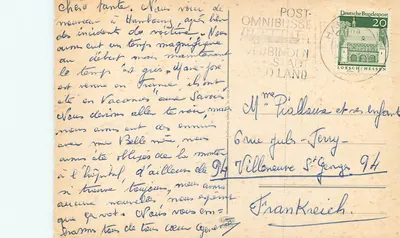 Chère tante. Nous voici de
nouveau à Hambourg, après bien
des incidents de voiture. Nous
avons eu un temps magnifique
au début mais maintenant
le temps est gris. Marie-José
est venue en France ils ont
été en Vacances aux Savoie.
Nous devions aller te voir, mais
nous avons eut des ennuis
avec ma Belle mère nous
avons été obligés de la mettre
à l'hôpital, d'ailleurs de 94
si trouve toujours, nous avons
aucune nouvelles, nous espérons
que ça va. Nous vous em-
brassons tous de tout cœur
POST-
OMNIBUSSE
VERBINDEN
STADT
LAND
Deutsche Bundespost
20
LORSCH/HESSEN
Mme Piallaux et ses enfants
6 rue Jules-Ferry
Villeneuve St Georges 94
Frankreich